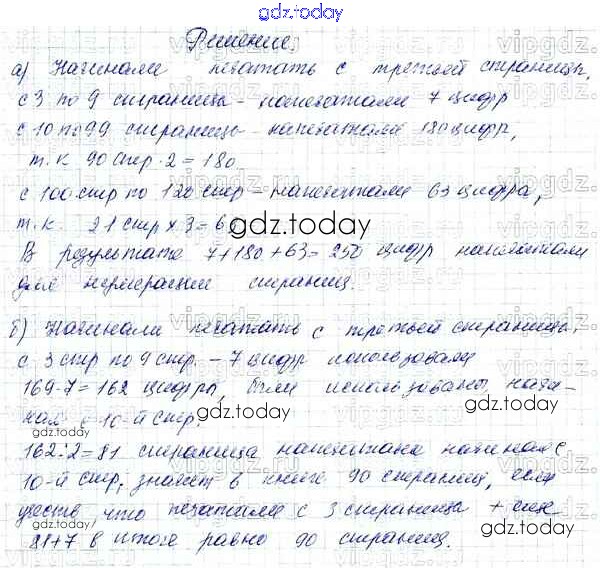 gdz.today
Решение.
а) Начинали печатать с третьей страницы,
с 3 по 9 страницы - напечатали 7 цифр
с 10 по 99 страницы - напечатали 180 цифр,
т.к 90 стр · 2 = 180
с 100 стр по 120 стр - напечатали 63 цифра,
т.к. 21 стр × 3 = 63
gdz.today
В результате 7+180+63=250 цифр напечатали
для нумерации страниц.
б) Начинали печатать с третьей страницы.
с 3 стр по 9 стр. - 7 цифр использовали
169-7=162 цифры, были использованы начи-
ная с 10-й стр.
gdz.today
162:2=81 страница напечатана начиная с
10-й стр, значит в книге 90 страниц, если
учесть что печатали с 3 страницы + еще
81+7 в итоге равно 90 страниц.
gdz.today
gdz.today
gdz.today